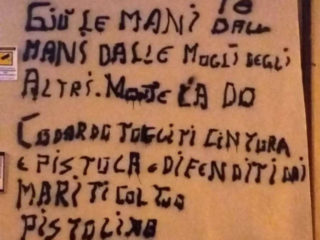 GIÙ LE MANI DALL
MANS DALLE MOGLI DEGLI
ALTRI. LA DO
CODARDO TOGLITI CINTURA
E PISTOLA E DIFENDITI DAI
MARITI COL TUO
PISTOLINO